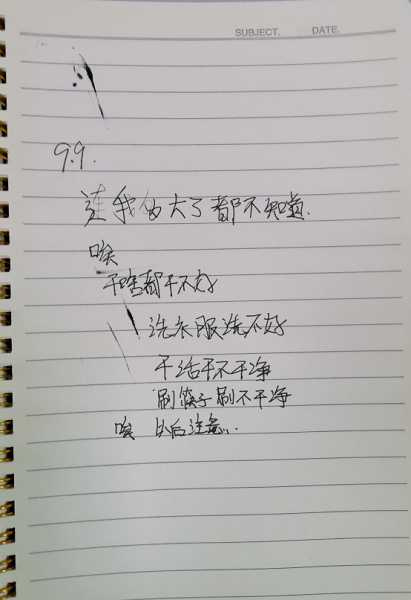 SUBJECT. DATE.
9.9.
连我的大了都不知道.
唉
干啥都干不好
洗衣服洗不好
干活干不干净
刷筷子刷不干净
唉 以后注意..